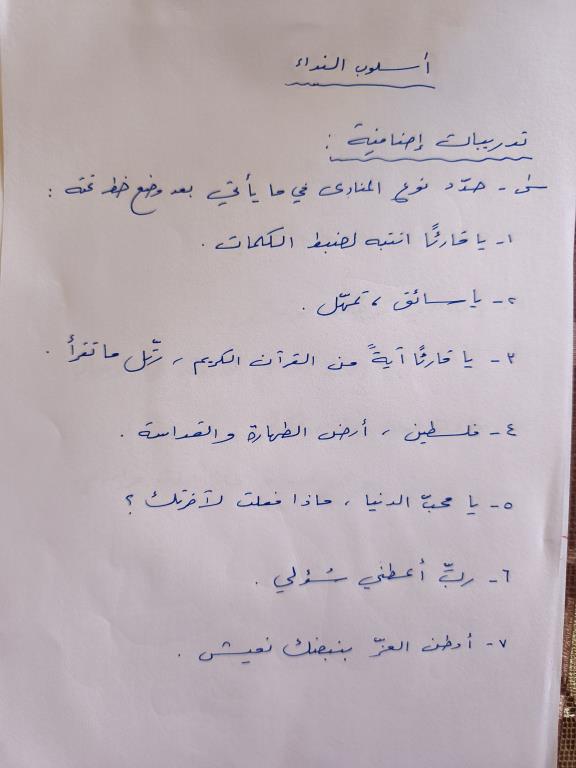 أسلوب النداء
تدريبات إضافية :
س١- حدّد نوع المنادى في ما يأتي بعد وضع خط تحته :
١- يا قارئًا انتبه لضبط الكلمات .
٢- يا سائق ، تمهّل .
٣- يا قارئًا آيةً من القرآن الكريم ، رتّل ما تقرأ .
٤- فلسطين ، أرض الطهارة والقداسة .
٥- يا محبّ الدنيا ، ماذا فعلت لآخرتك ؟
٦- ربِّ أعطني سُؤلي .
٧- أوطن العزّ بنبضك نعيش .